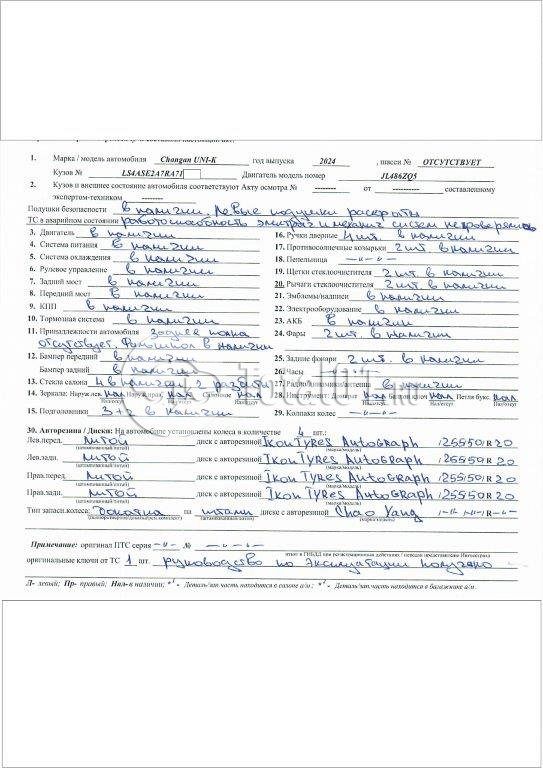 1. Марка / модель автомобиля Changan UNI-K год выпуска 2024 , шасси № ОТСУТСТВУЕТ
Кузов № LS4ASE2A7RA71 Двигатель модель номер JL486ZQ5
2. Кузов и внешнее состояние автомобиля соответствуют Акту осмотра № -------- от ----------- составленному
экспертом-техником ----------
Подушки безопасности в наличии. Левые подушки раскрыты
ТС в аварийном состоянии работоспособность электрич и механич систем не проверялась
3. Двигатель в наличии
4. Система питания в наличии
5. Система охлаждения в наличии
6. Рулевое управление в наличии
7. Задний мост в наличии
8. Передний мост в наличии
9. КПП в наличии
10. Тормозная система в наличии
11. Принадлежности автомобиля задняя полка
отсутствует, в наличии
12. Бампер передний в наличии
Бампер задний в наличии
13. Стекла салона 4 в наличии 2 разбиты
14. Зеркала: Наруж лев. нал Наруж прав. нал Салонное нал
15. Подголовники 3+2 в наличии
16. Ручки дверные 4 шт. в наличии
17. Противосолнечные козырьки 2 шт в наличии
18. Пепельница -"-"-
19. Щетки стеклоочистителя 2 шт. в наличии
20. Рычаги стеклоочистителя 2 шт. в наличии
21. Эмблемы/надписи в наличии
22. Электрооборудование в наличии
23. АКБ в наличии
24. Фары 2 шт. в наличии
25. Задние фонари 2 шт. в наличии
26. Часы
27. Радио/динамики/антенна в наличии
28. Инструмент: Домкрат нал нал Петля букс. нал
29. Колпаки колес -"-"-
30. Авторезина / Диски: На автомобиле установлены колеса в количестве 4 шт.:
Лев.перед. литой диск с авторезиной Ikon Tyres Autograph , 255 50 R 20
(штампованный/литой) (марка/модель)
Лев.задн. литой диск с авторезиной Ikon Tyres Autograph , 255 50 R 20
Прав.перед. литой диск с авторезиной Ikon Tyres Autograph , 255 50 R 20
Прав.задн. литой диск с авторезиной Ikon Tyres Autograph , 255 50 R 20
Тип запасн.колеса: докатка на штамп. диске с авторезиной Chao Yang -"- -"- R -"-
Примечание: оригинал ПТС серия -"- № -"-"-
оригинальные ключи от ТС 1 шт. руководство по эксплуатации получено -
Л- левый; Пр- правый; Нал- в наличии; *¹ - Деталь/зап.часть находится в салоне а/м; *² - Деталь/зап.часть находится в багажнике а/м.